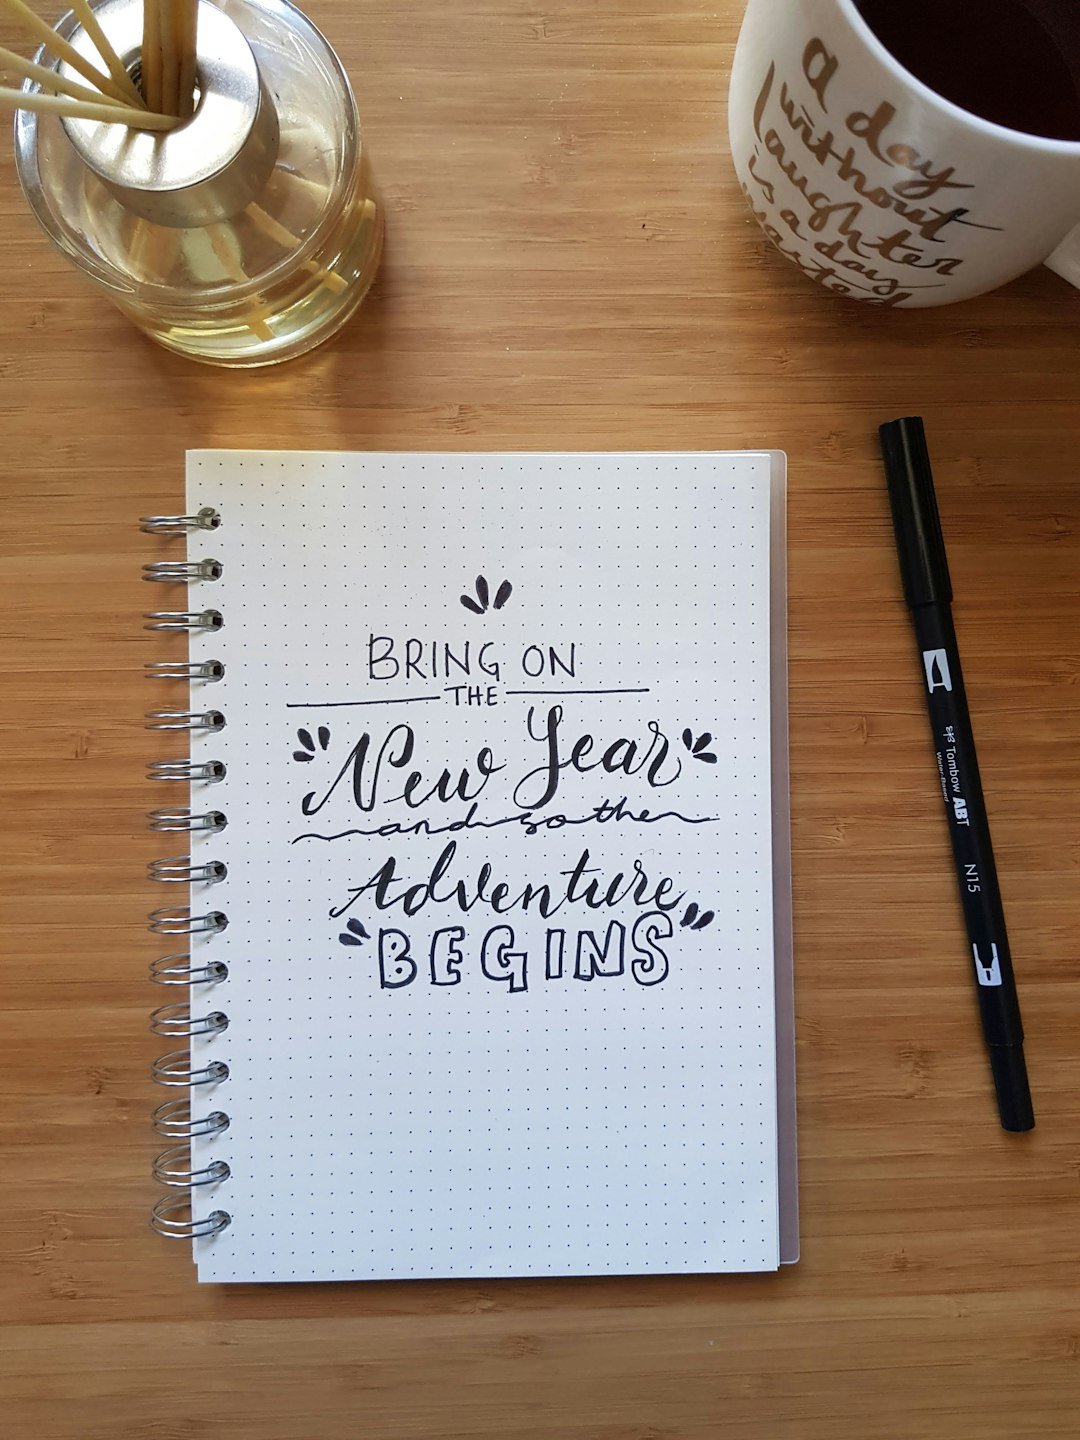 a day
without
laughter
is a day
wasted
BRING ON
THE
New Year
and so the
Adventure
BEGINS
Tombow ABT
Water-Based
N15